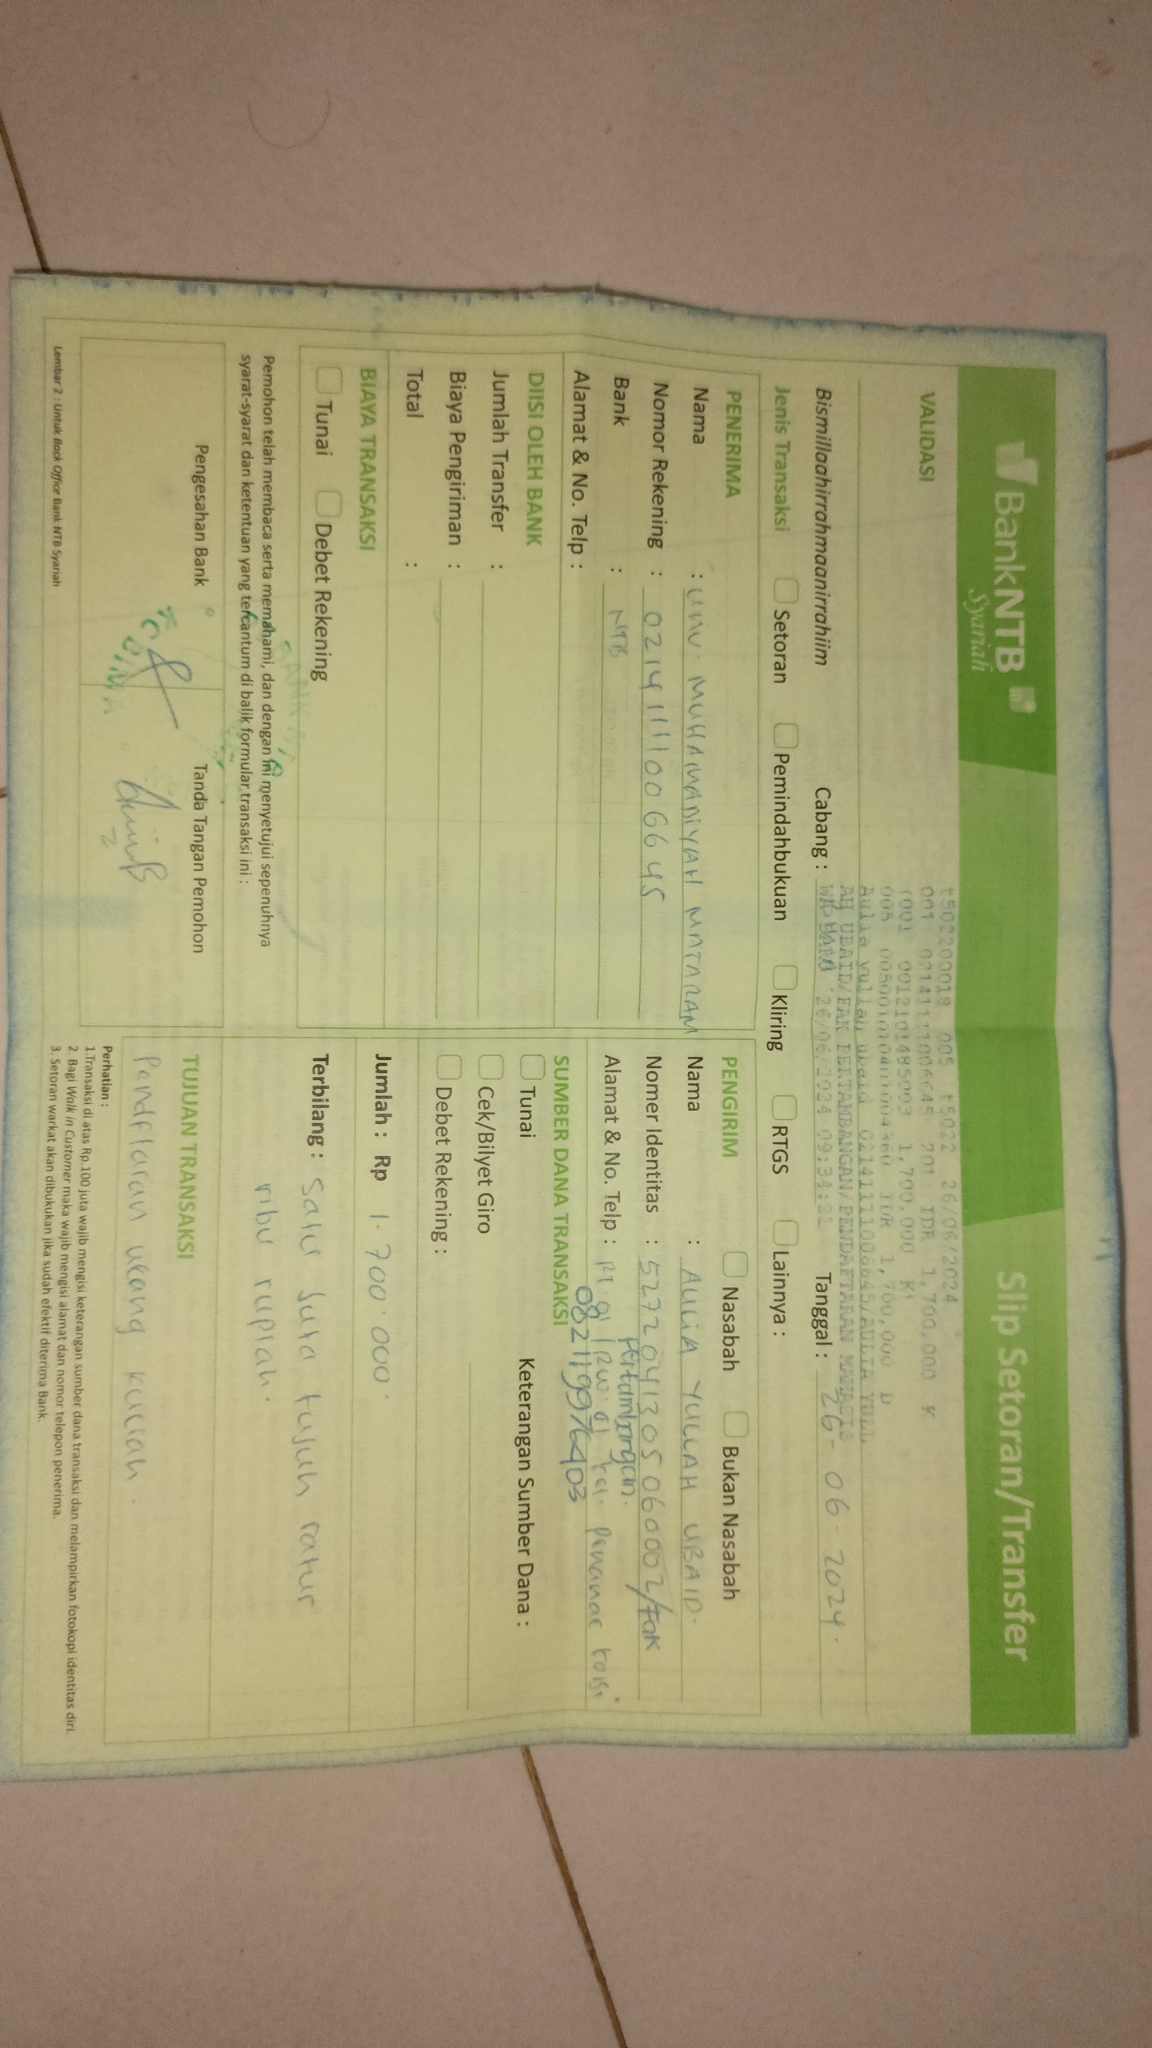 BankNTB
Syariah
Slip Setoran/Transfer
VALIDASI
t502200019 005 t5022 26/06/2024
001 0214111006645 701 IDR 1,700,000 K
(001 0012101485093 1,700,000 K
005 IDR 1,700,000 D
Aulia yuliah ubaid 0214111006645/AULIA YULL
AH UBAID/FAK PERTAMBANGAN/PENDAFTARAN
26/06/2024 09:34:21
Bismillaahirrahmaanirrahiim
Cabang :
Tanggal : 26 - 06 - 2024.
Jenis Transaksi
Setoran
Pemindahbukuan
Kliring
RTGS
Lainnya :
PENERIMA
Nama : UNV. MUHAMADIYAH MATARAM
Nomor Rekening : 0214111100 6645
Bank : NTB
Alamat & No. Telp :
PENGIRIM
Nasabah
Bukan Nasabah
Nama : AULIA YULLAH UBAID.
Nomer Identitas : 5272041305060002/Fak
Pertambangan.
Alamat & No. Telp : RT.01 / RW.01 kel. Penanae
082119976403
DIISI OLEH BANK
Jumlah Transfer :
Biaya Pengiriman :
Total :
SUMBER DANA TRANSAKSI
Tunai
Keterangan Sumber Dana :
Cek/Bilyet Giro
Debet Rekening :
BIAYA TRANSAKSI
Tunai
Debet Rekening
Jumlah : Rp 1.700.000.
Terbilang : satu Juta tujuh ratus
ribu rupiah.
Pemohon telah membaca serta memahami, dan dengan ini menyetujui sepenuhnya
syarat-syarat dan ketentuan yang tercantum di balik formular transaksi ini :
Pengesahan Bank
Tanda Tangan Pemohon
TUJUAN TRANSAKSI
Pandftaran ueang kuliah.
Perhatian :
1.Transaksi di atas Rp.100 juta wajib mengisi keterangan sumber dana transaksi dan melampirkan fotokopi identitas diri.
2. Bagi Walk in Customer maka wajib mengisi alamat dan nomor telepon penerima.
3. Setoran warkat akan dibukukan jika sudah efektif diterima Bank.
Lembar 2 : Untuk Back Office Bank NTB Syariah